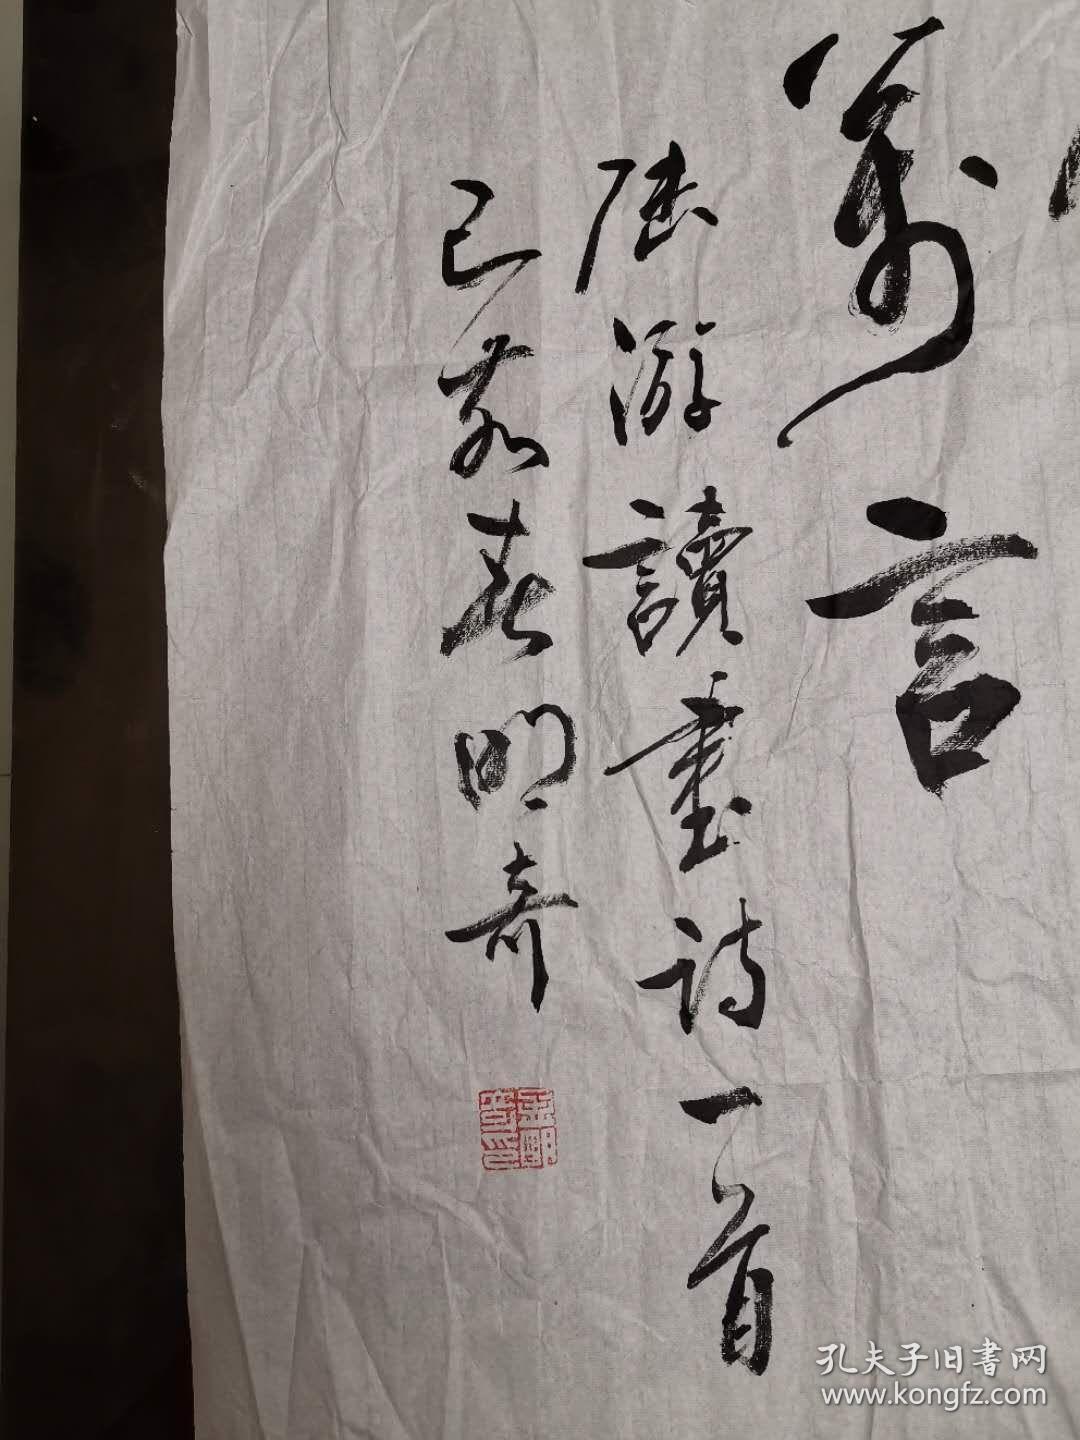 萬言
陸游讀書詩一首
己亥春明奇
孔夫子旧書网
www.kongfz.com